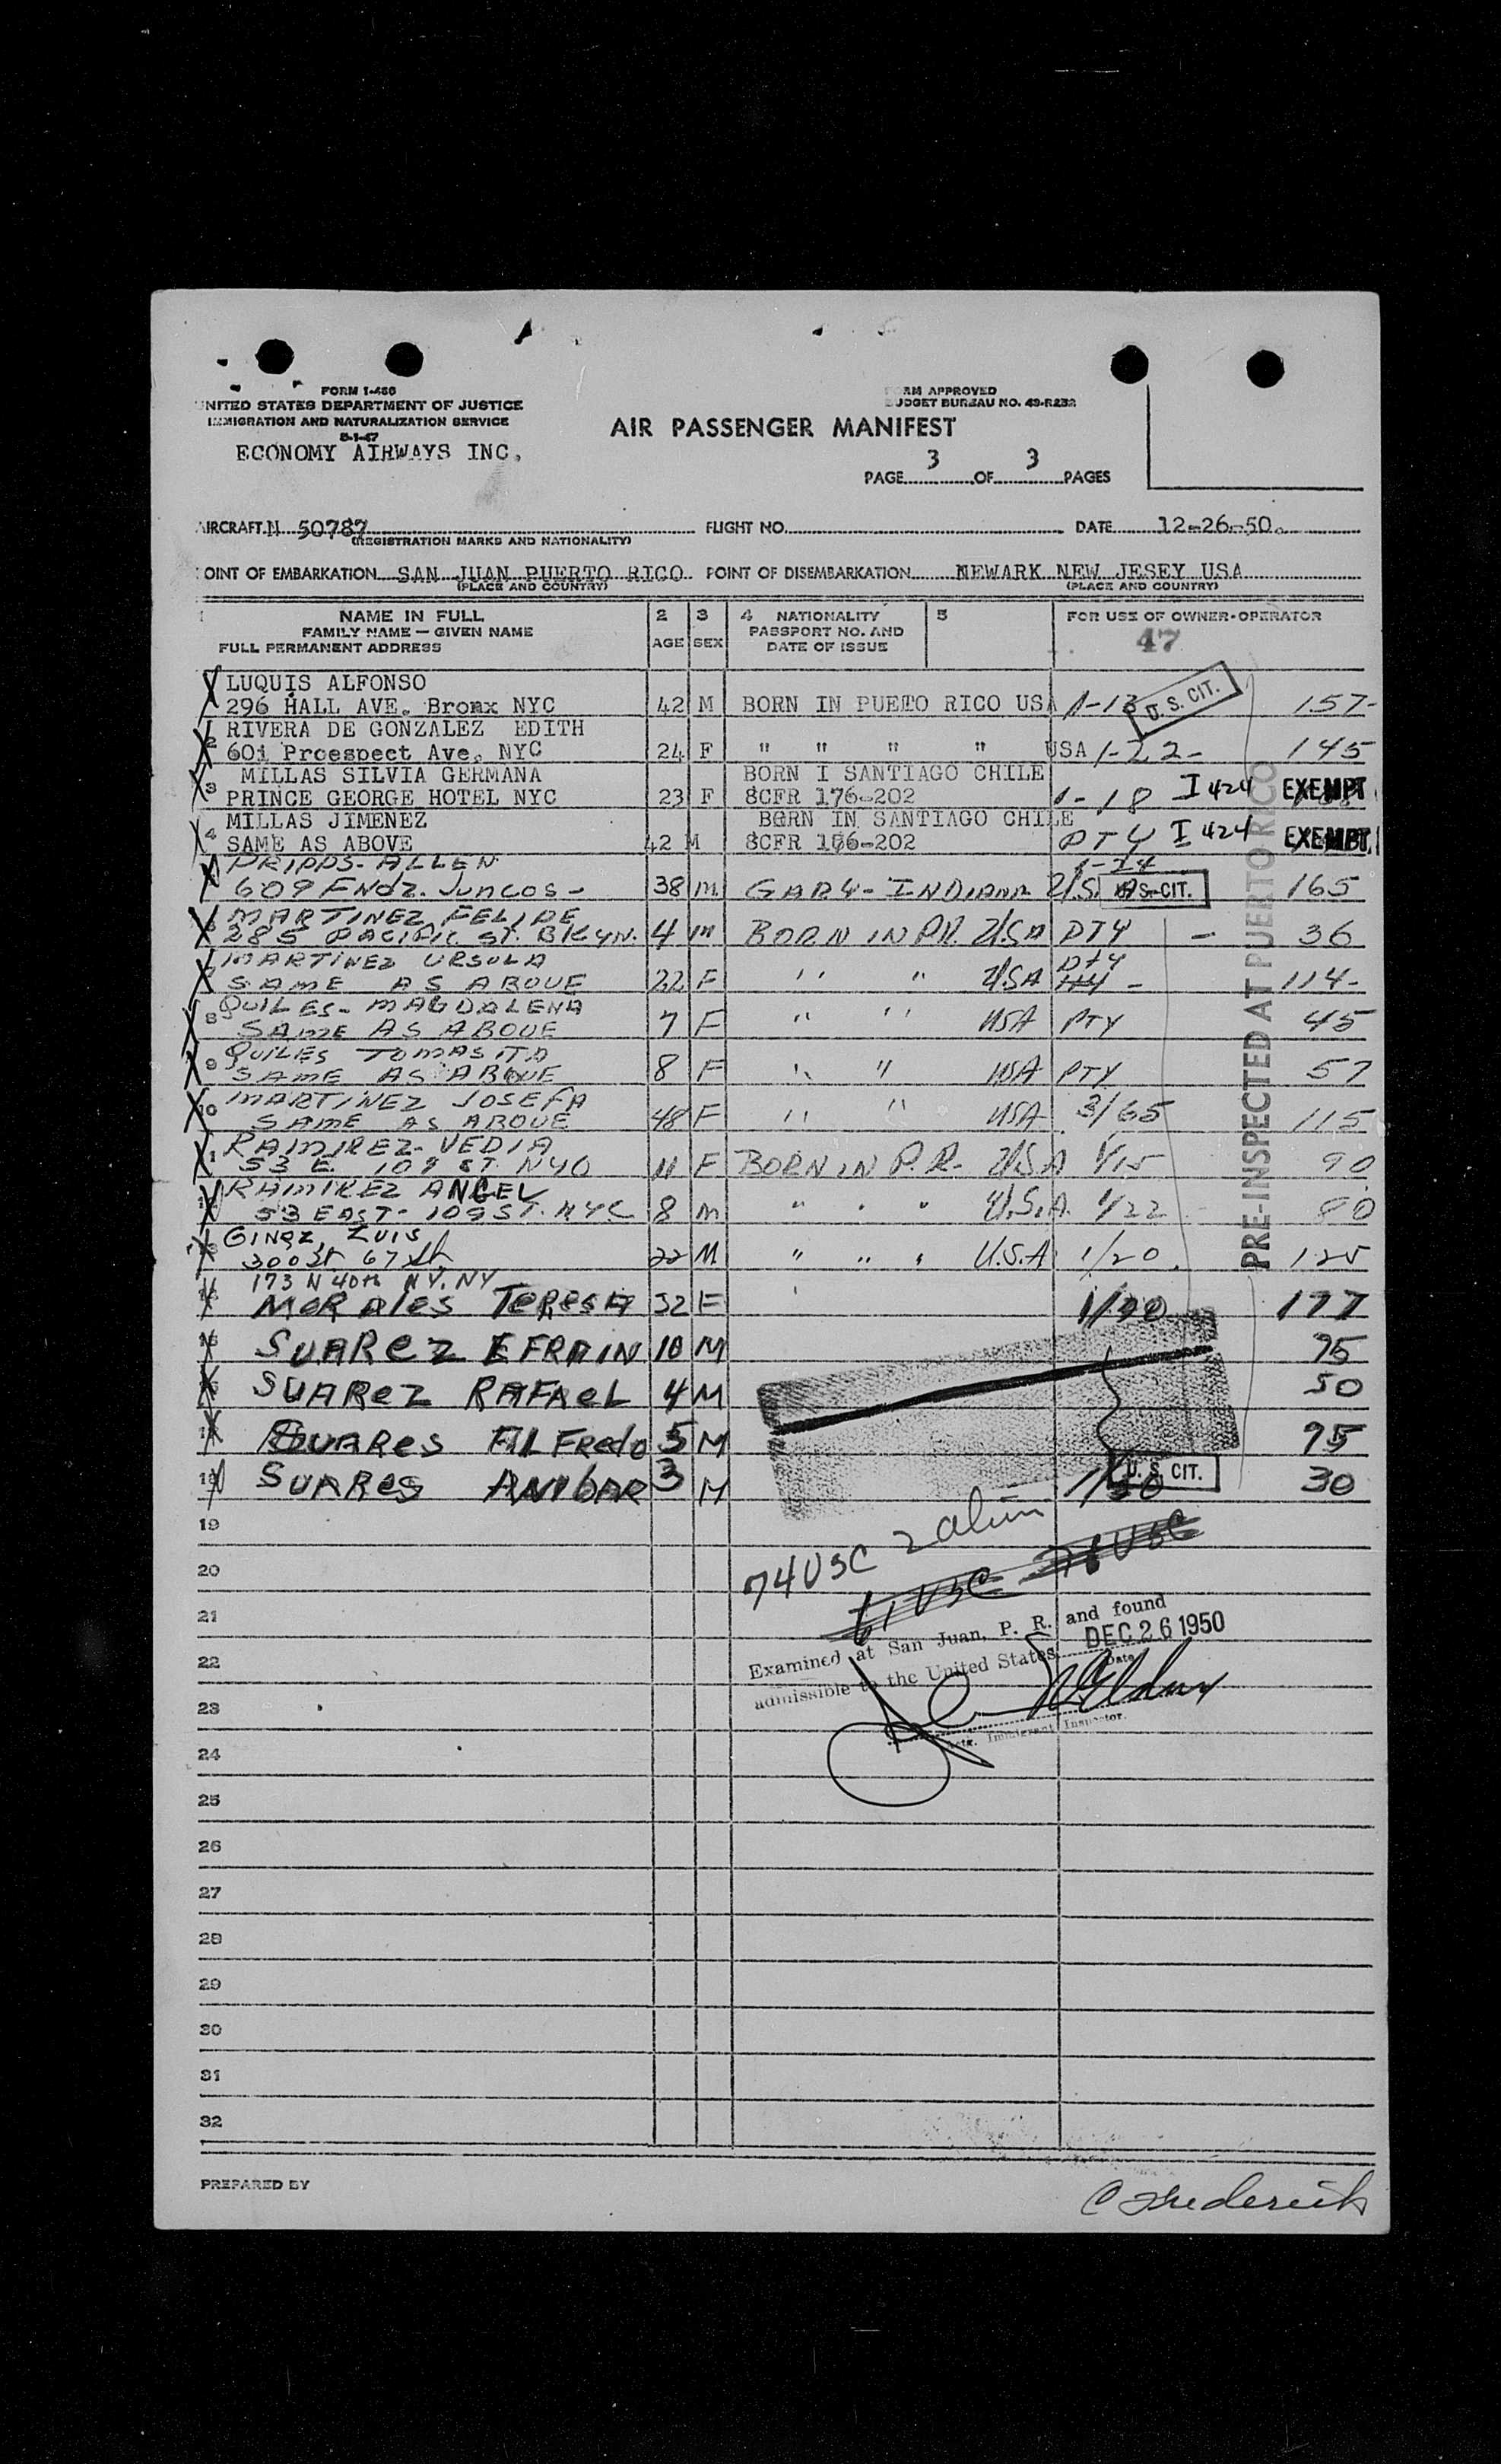 FORM I-466
UNITED STATES DEPARTMENT OF JUSTICE
IMMIGRATION AND NATURALIZATION SERVICE
5-1-47
ECONOMY AIRWAYS INC.
FORM APPROVED
BUDGET BUREAU NO. 43-R232
AIR PASSENGER MANIFEST
PAGE 3 OF 3 PAGES
AIRCRAFT N 50787 FLIGHT NO. DATE 12-26-50.
(REGISTRATION MARKS AND NATIONALITY)
POINT OF EMBARKATION SAN JUAN PUERTO RICO POINT OF DISEMBARKATION NEWARK NEW JESEY USA
(PLACE AND COUNTRY) (PLACE AND COUNTRY)
1 NAME IN FULL 2 3 4 NATIONALITY 5 FOR USE OF OWNER-OPERATOR
FAMILY NAME — GIVEN NAME AGE SEX PASSPORT NO. AND 47
FULL PERMANENT ADDRESS DATE OF ISSUE
LUQUIS ALFONSO
296 HALL AVE. Bronx NYC 42 M BORN IN PUETO RICO USA 1-13 U. S. CIT. 157-
RIVERA DE GONZALEZ EDITH
2 601 Proespect Ave. NYC 24 F " " " " USA 1-22- 145
MILLAS SILVIA GERMANA BORN I SANTIAGO CHILE
3 PRINCE GEORGE HOTEL NYC 23 F 8CFR 176-202 1-18 I 424 EXEMPT
MILLAS JIMENEZ BORN IN SANTIAGO CHILE
4 SAME AS ABOVE 42 M 8CFR 176-202 PTY I 424 EXEMPT
PRIPPS-ALLEN 1-24
609 FNDZ. JUNCOS- 38 M GARY-INDIANA U.S.A U.S-CIT. 165
MARTINEZ FELIPE
285 PACIFIC ST. BKLYN. 4 M BORN IN P.R. USA PTY - 36
MARTINEZ URSULA Pty
SAME AS ABOVE 22 F " " USA - 114-
QUILES-MAGDALENA
8 SAME AS ABOVE 7 F " " USA PTY 45
QUILES TOMASITA
9 SAME AS ABOVE 8 F " " USA PTY 57
MARTINEZ JOSEFA
10 SAME AS ABOVE 48 F " " USA 3/65 115
RAMIREZ-VEDIA
53 E. 109 ST. NYC 11 F BORN IN P.R. USA 1/15 90
RAMIREZ ANGEL
53 EAST-109 ST. NYC 8 M " " " U.S.A. 1/22 80
GINEZ, LUIS
300 St 67 St 22 M " " " U.S.A 1/20 125
173 N 40th N.Y. NY
MORALES TERESA 32 F 1/20 177
SUAREZ EFRAIN 10 M 75
SUAREZ RAFAEL 4 M 50
SUARES ALFREDO 5 M 95
SUARES ANIBAR 3 M U. S. CIT. 30
PRE-INSPECTED AT PUERTO RICO
19
74 USC 2 alien
20
61 USC 76 USC
21
Examined at San Juan, P. R. and found
admissible to the United States DEC 26 1950
Date
22
23
Immigrant Inspector.
24
25
26
27
28
29
30
31
32
PREPARED BY C Frederick